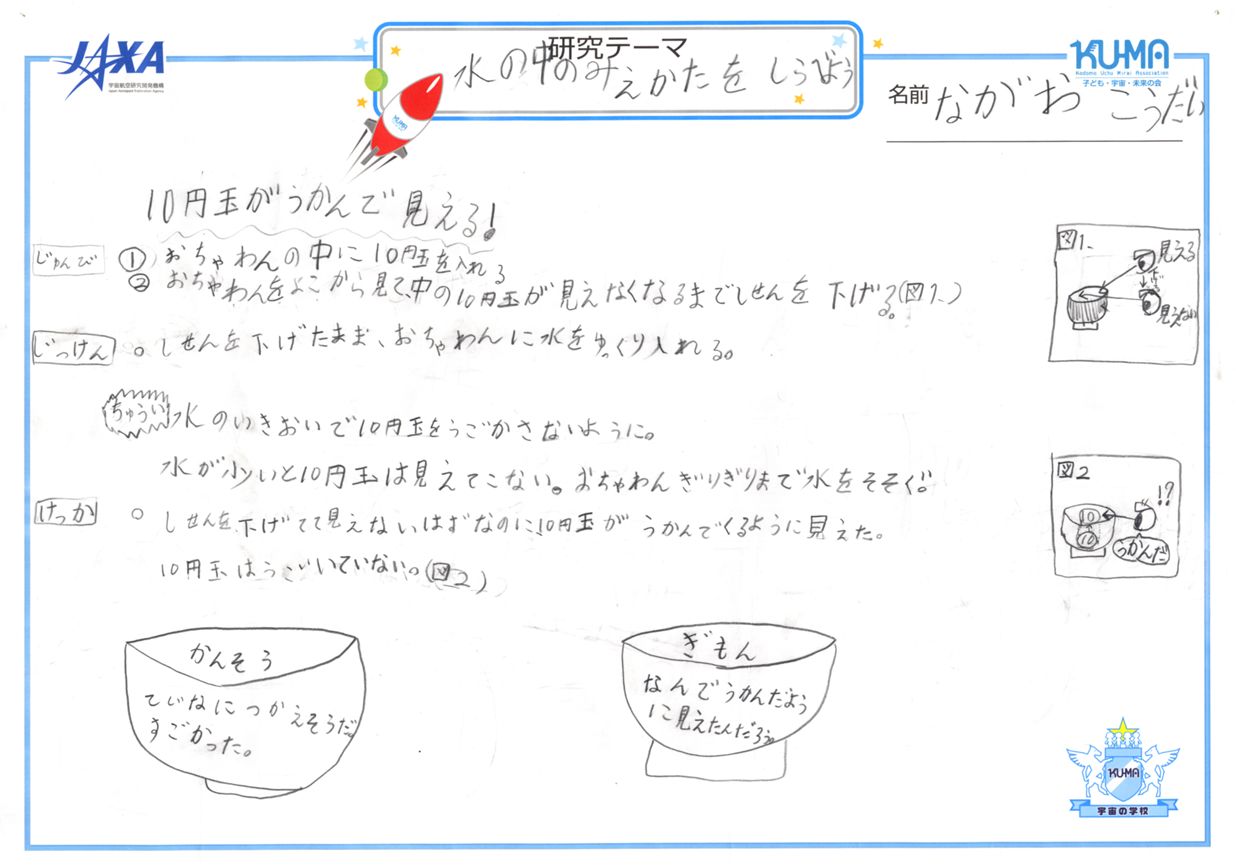 JAXA
宇宙航空研究開発機構
Japan Aerospace Exploration Agency
研究テーマ
水の中のみえかたをしらべよう
KUMA
Kodomo Uchu Mirai Association
子ども・宇宙・未来の会
名前 ながお こうだい
KUMA
10円玉がうかんで見える!
じゅんび ① おちゃわんの中に10円玉を入れる
② おちゃわんをよこから見て、中の10円玉が見えなくなるまでしせんを下げる。(図1.)
じっけん ○ しせんを下げたまま、おちゃわんに水をゆっくり入れる。
ちゅうい 水のいきおいで10円玉をうごかさないように。
水が少いと10円玉は見えてこない。おちゃわんぎりぎりまで水をそそぐ。
けっか ○ しせんを下げてて見えないはずなのに10円玉がうかんでくるように見えた。
10円玉はうごいていない。(図2)
図1.
見える
下げる
見えない
図2
!?
10
10
うかんだ
かんそう
てじなにつかえそうだ。
すごかった。
ぎもん
なんでうかんだよう
に見えたんだろう。
KUMA
宇宙の学校